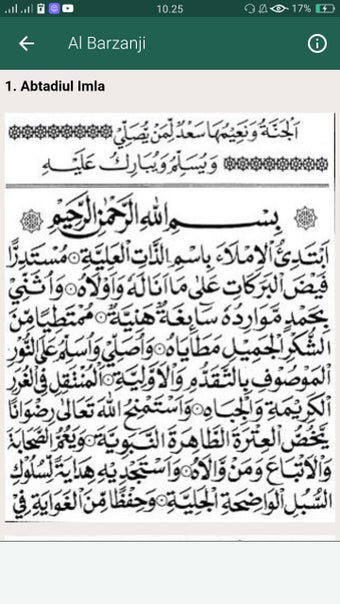 10.25
17%
Al Barzanji
1. Abtadiul Imla
اَلْجَنَّةُ وَنَعِيْمُهَا سَعْدٌ لِمَنْ يُصَلِّيْ
وَيُسَلِّمُ وَيُبَارِكُ عَلَيْهِ
بِسْمِ اللهِ الرَّحْمٰنِ الرَّحِيْمِ
اَبْتَدِئُ الْاِمْلَاءَ بِاسْمِ الذَّاتِ الْعَلِيَّةِ ۞ مُسْتَدِرًّا
فَيْضَ الْبَرَكَاتِ عَلٰى مَا اَنَالَهُ وَاَوْلَاهُ ۞ وَاُثَنِّيْ
بِحَمْدٍ مَوَارِدُهُ سَائِغَةٌ هَنِيَّةٌ ۞ مُمْتَطِيًا مِنَ
الشُّكْرِ الْجَمِيْلِ مَطَايَاهُ ۞ وَاُصَلِّيْ وَاُسَلِّمُ عَلَى النُّوْرِ
الْمَوْصُوْفِ بِالتَّقَدُّمِ وَالْاَوَّلِيَّةِ ۞ الْمُنْتَقِلِ فِي الْغُرَرِ
الْكَرِيْمَةِ وَالْجِبَاهِ ۞ وَاَسْتَمْنِحُ اللهَ تَعَالٰى رِضْوَانًا
يَخُصُّ الْعِتْرَةَ الطَّاهِرَةَ النَّبَوِيَّةَ ۞ وَيَعُمُّ الصَّحَابَةَ
وَالْاَتْبَاعَ وَمَنْ وَالَاهُ ۞ وَاَسْتَجْدِيْهِ هِدَايَةً لِسُلُوْكِ
السُّبُلِ الْوَاضِحَةِ الْجَلِيَّةِ ۞ وَحِفْظًا مِنَ الْغَوَايَةِ فِيْ